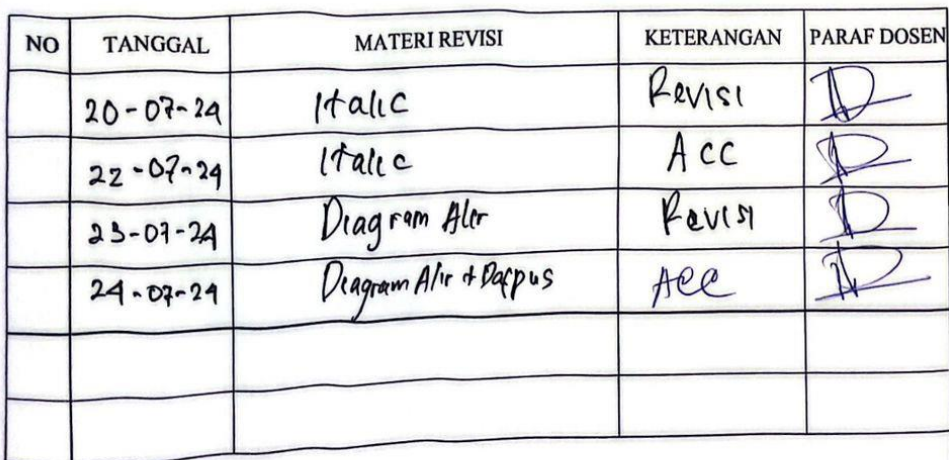 NO TANGGAL MATERI REVISI KETERANGAN PARAF DOSEN
20-07-24 Italic Revisi
22-07-24 Italic ACC
23-07-24 Diagram Alir Revisi
24-07-24 Diagram Alir + Dafpus ACC